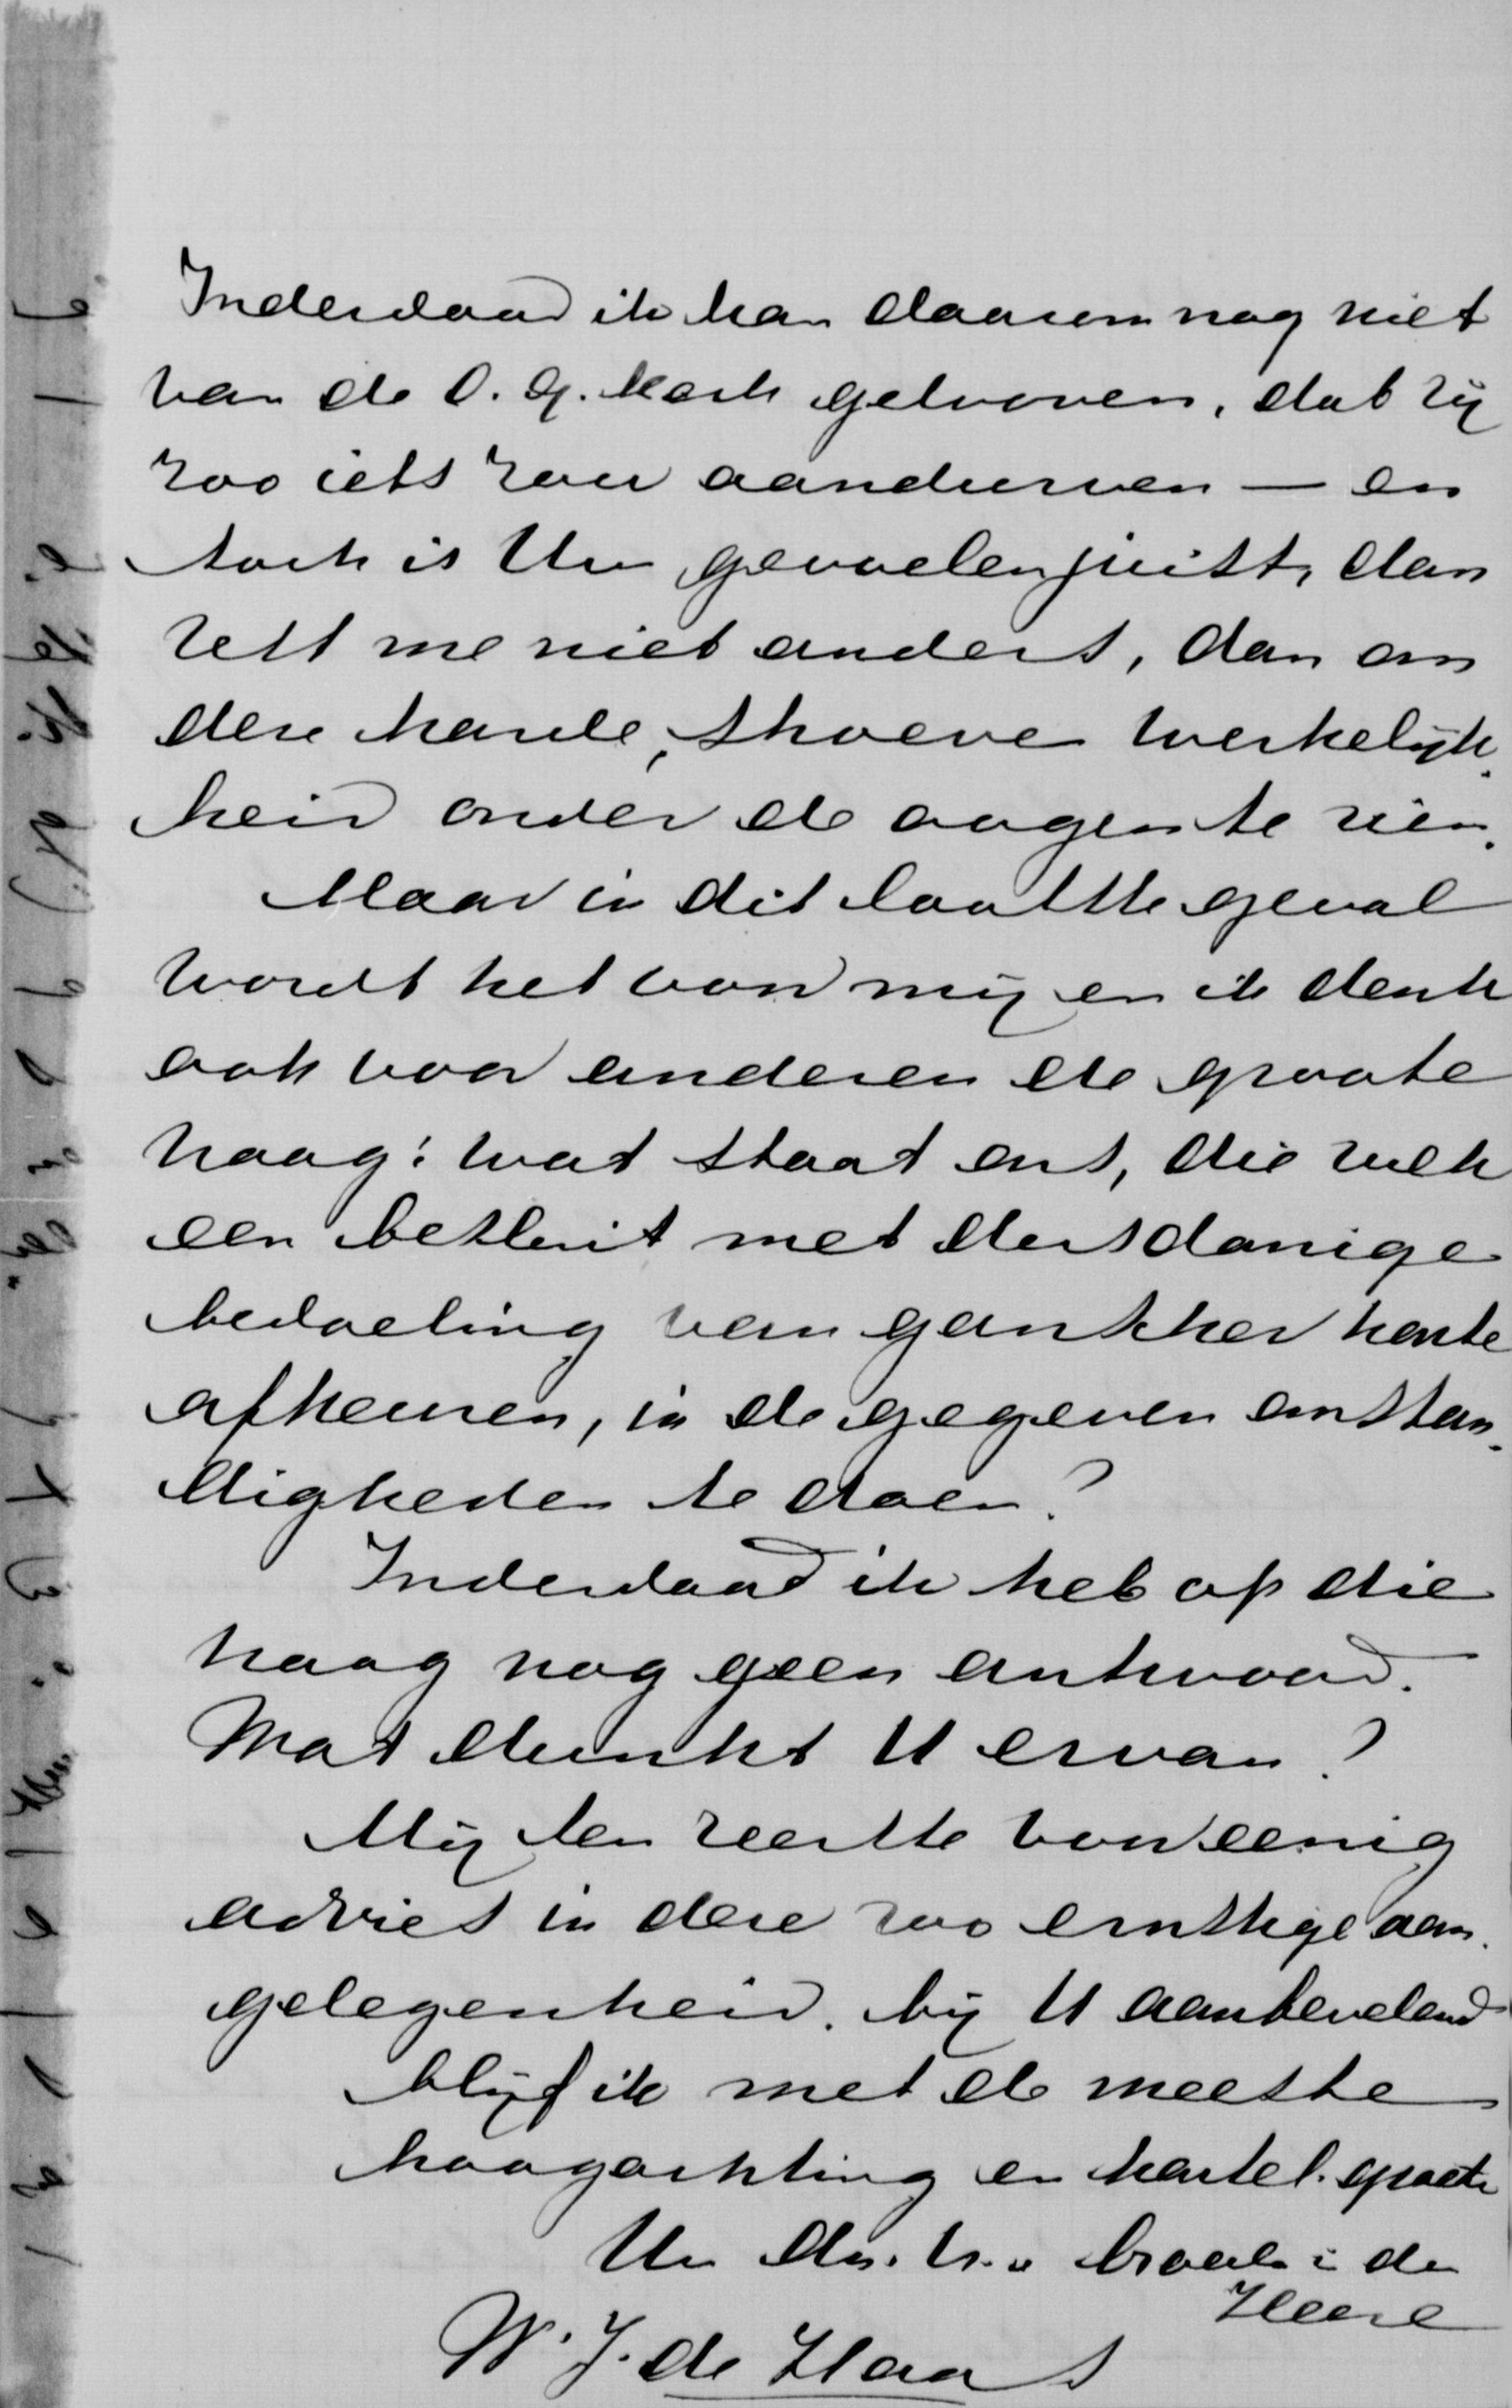 Inderdaad ik kan daarom nog niet
van de O. G. Kerk gelooven, dat zij
zoo iets zou aandurven — en
toch is Uw gevoelen juist, dan
rest me niet anders, dan om
deze harde, droeve werkelijk
heid onder de oogen te zien.
Maar in dit laatste geval
wordt het voor mij en ik denk
ook voor anderen de groote
vraag: wat staat ons, die zulk
een besluit met dusdanige
bedoeling van ganscher harte
afkeuren, in de gegeven omstan
digheden te doen?
Inderdaad ik heb op die
vraag nog geen antwoord.
Wat dunkt U ervan?
Mij ten zeerste voor eenig
advies in deze zoo ernstige aan
gelegenheid, bij U aanbevelend
blijf ik met de meeste
hoogachting en hartel. groete
Uw dw. br. in den
Heere
W. J. de Haas